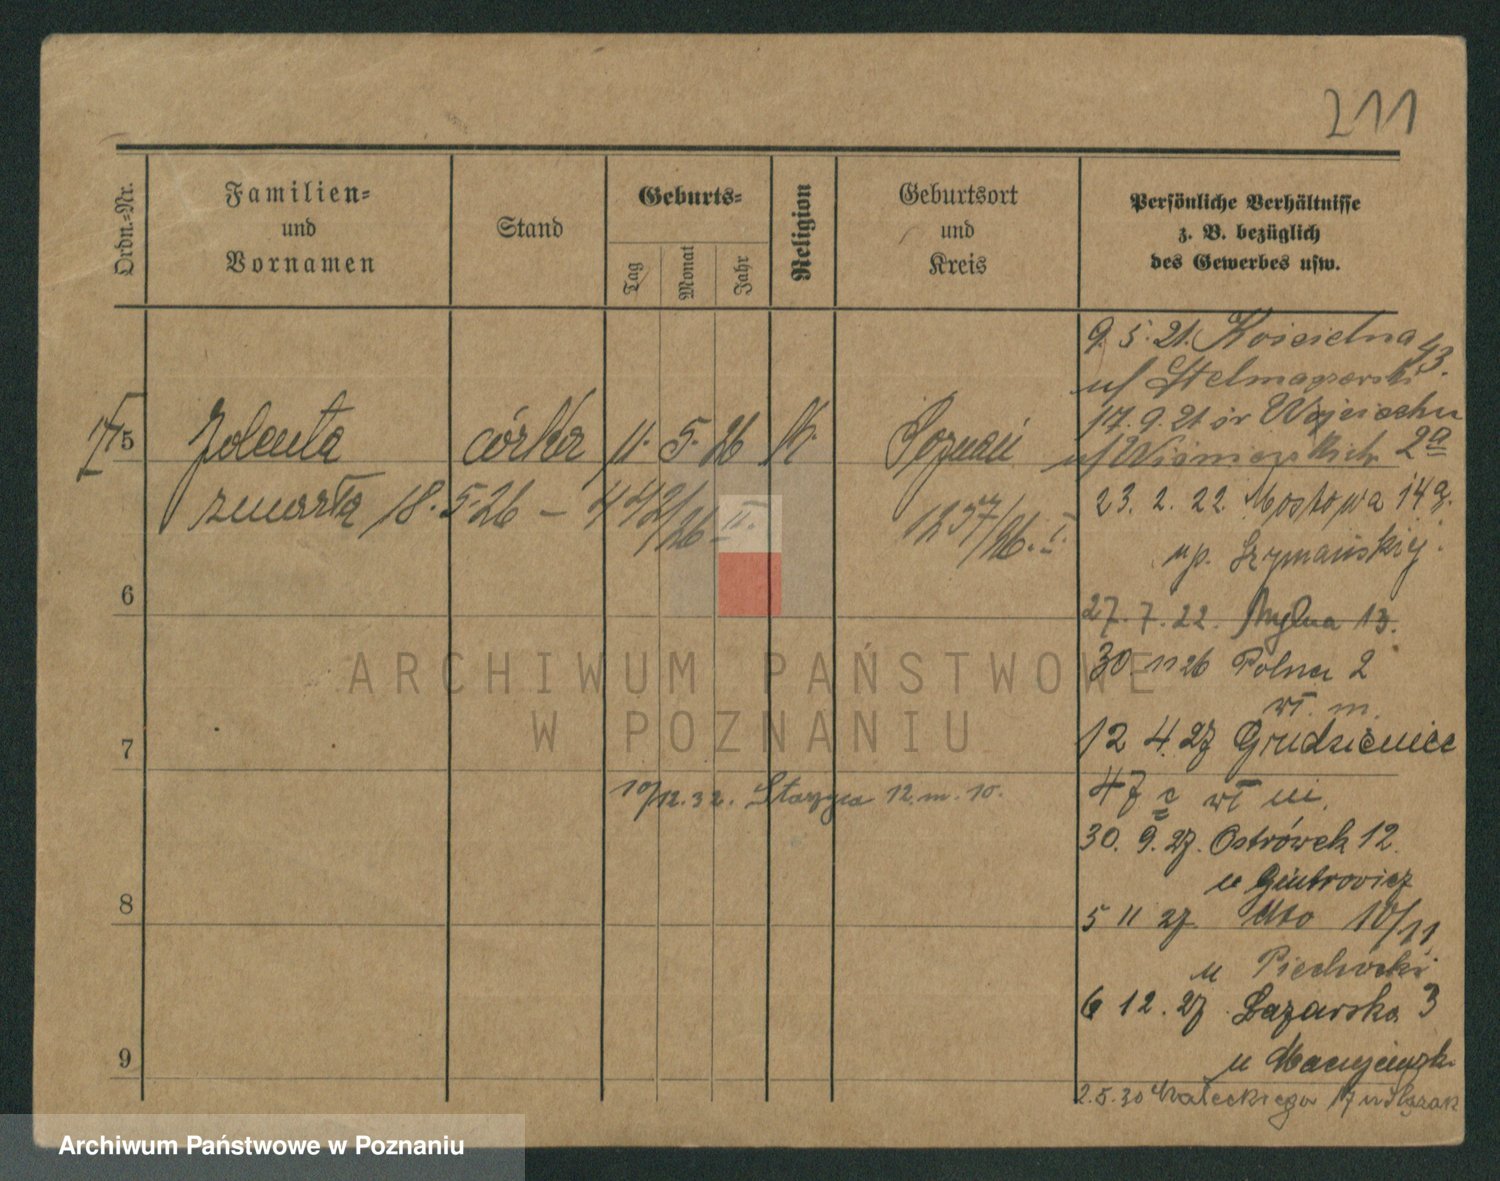 211
Ordn.-Nr.
Familien-
und
Vornamen
Stand
Geburts-
Tag
Monat
Jahr
Religion
Geburtsort
und
Kreis
Persönliche Verhältnisse
z. B. bezüglich
des Gewerbes usw.
5 Jolanta córka 11. 5. 26 K. Poznań
zmarła 18.5.26 – 442/26 II. 1257/26. I.
6
7
8
9
9. 5. 21. Kościelna 43.
u/ Stelmaszewski
17. 9. 21 św Wojciecha 2a
u/
23. 2. 22 Mostowa 14a.
u p. Szymańskiej.
27. 7. 22. Mylna 13.
30. 11 26 Polna 2
wł. m.
12 4. 27 Grudzieniec
47 c wł m.
30. 9. 27. Ostrówek 12.
u
5 11 27 10/11
u Piechocki
6 12. 27 Łazarska 3
u
2.5.30 Małeckiego 17 u Ślązak
10/12. 32. Starzyca 12. m. 10.
ARCHIWUM PAŃSTWOWE
W POZNANIU
Archiwum Państwowe w Poznaniu